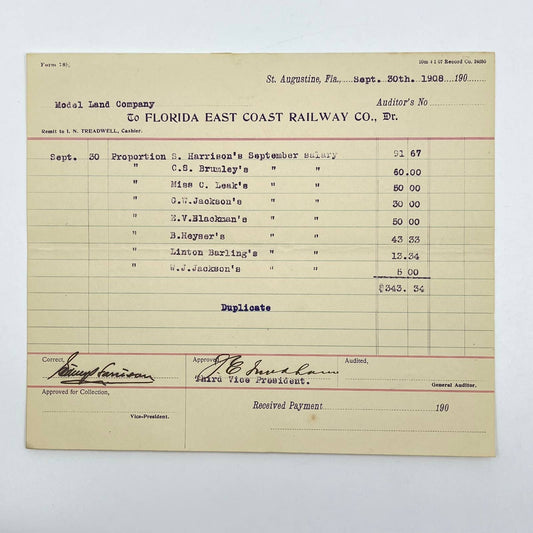 Form 
10m 4 1 07 Record Co.
St. Augustine, Fla., Sept. 30th. 1908 190
Model Land Company Auditor's No
To FLORIDA EAST COAST RAILWAY CO., Dr.
Remit to I. N. TREADWELL, Cashier.
Sept. 30 Proportion S. Harrison's September salary 91 67
" C.S. Brumley's " " 60.00
" Miss C. Leak's " " 50 00
" G.W.Jackson's " " 30 00
" E.V.Blackman's " " 50 00
" B.Heyser's " " 43 33
" Linton Barling's " " 13.34
" W.J.Jackson's " " 5 00
$343. 34
Duplicate
Correct, Approved Audited,
Third Vice President.
General Auditor.
Approved for Collection,
Vice-President.
Received Payment 190